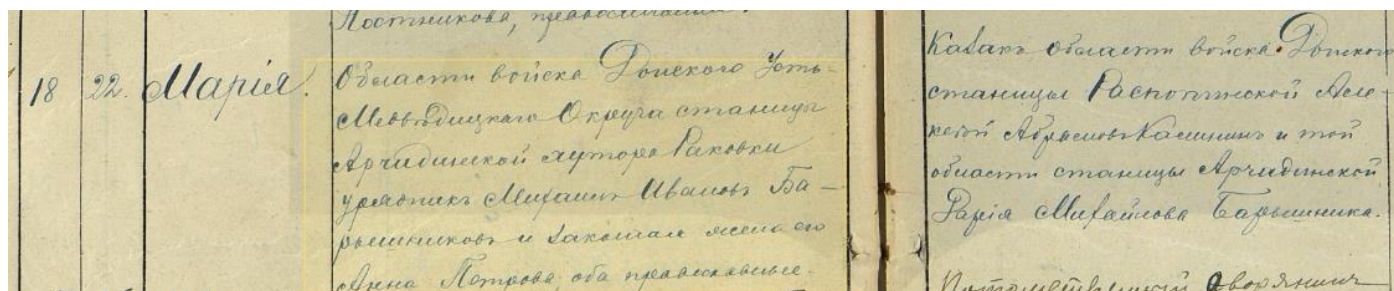 Постникова, православный.
18 22. Марія.
Области войска Донского Усть-
Медвѣдицкаго Округа станицы
Арчадинской хутора Раковки
урядникъ Михаилъ Ивановъ Ба-
рышниковъ и законная жена его
Анна Петрова, оба православные.
Казакъ области войска Донского
станицы Распопинской Алек-
сѣй Абрамовъ Калининъ и той
области станицы Арчадинской
Марія Михайлова Барышникова.
Потомственный дворянинъ